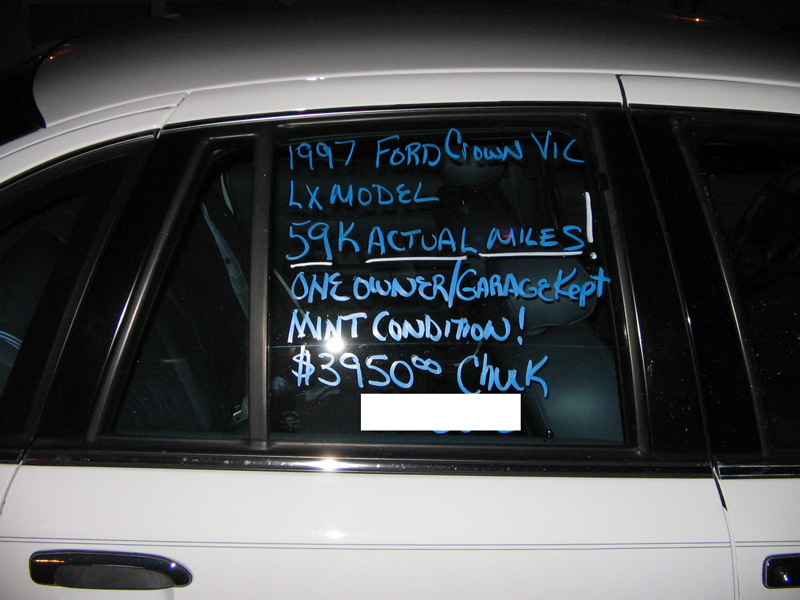 1997 FORD Crown VIC
LX MODEL
59K ACTUAL MILES!
ONE OWNER/GARAGE Kept
MINT CONDITION!
$3950⁰⁰ Chuck